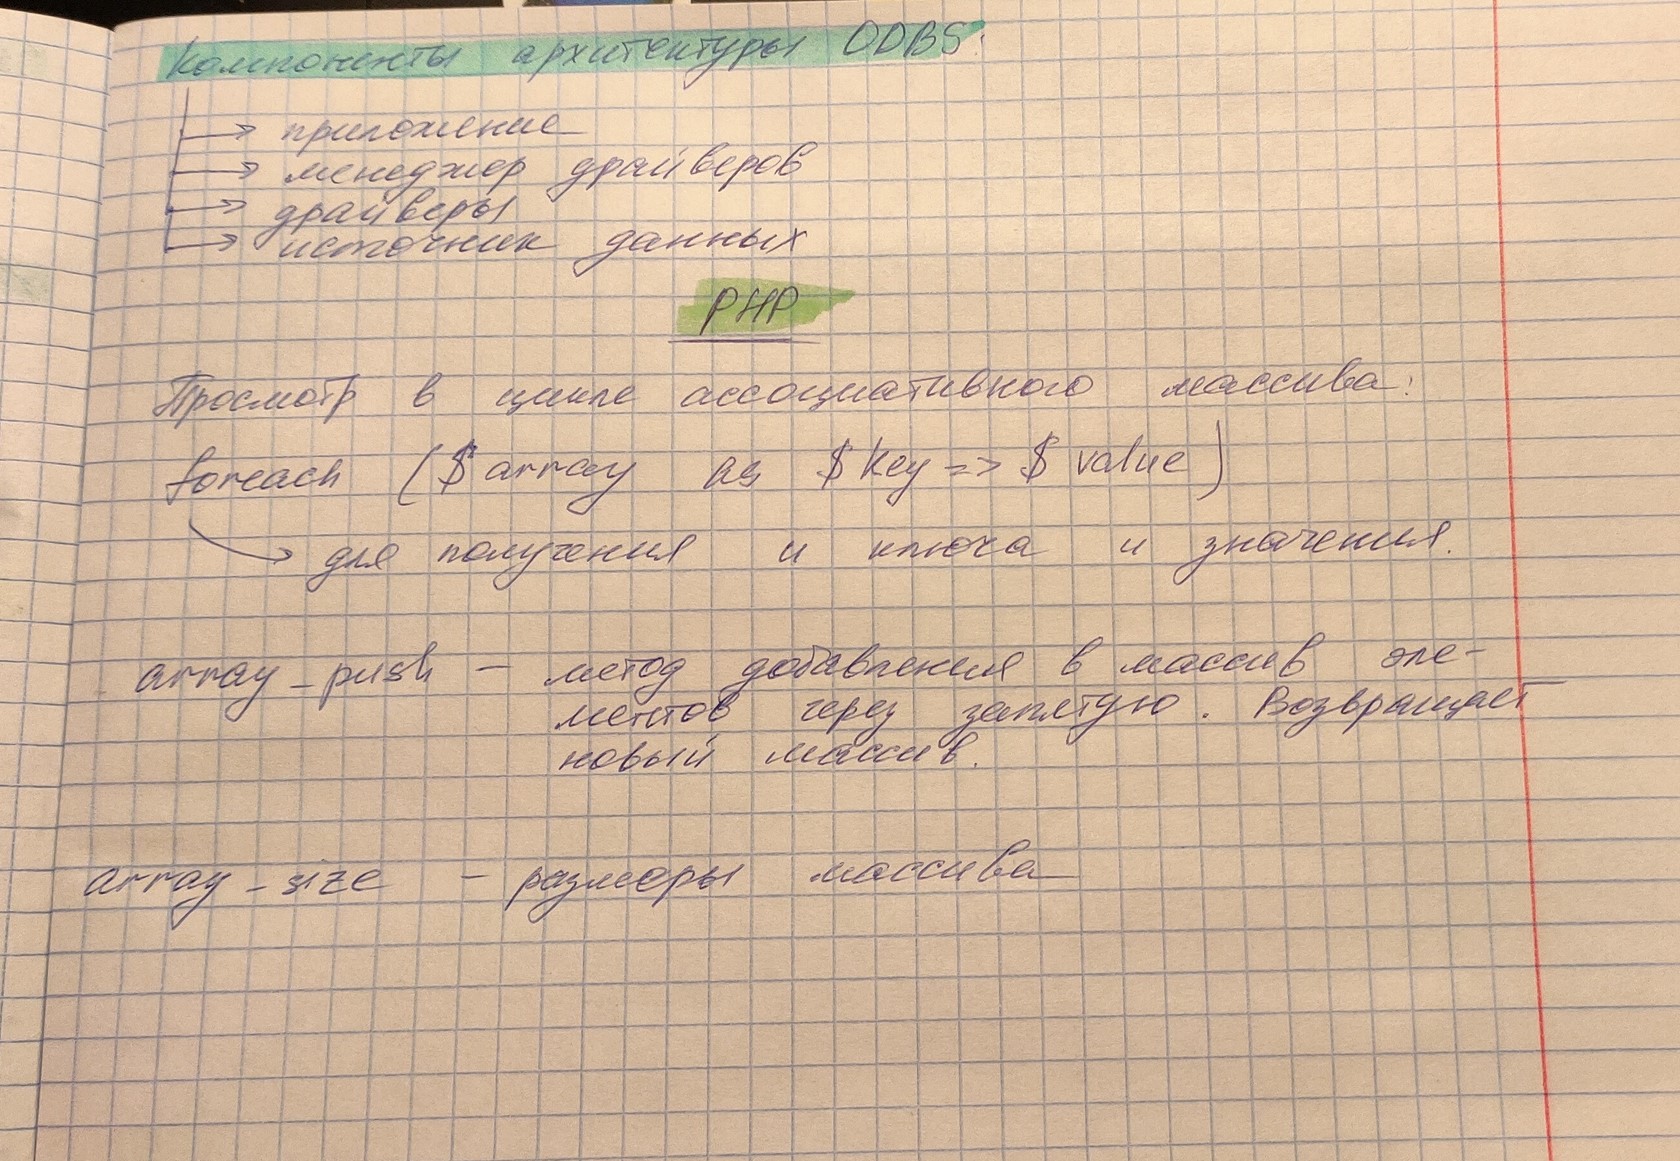 Компоненты архитектуры ODBS:
→ приложение
→ менеджер драйверов
→ драйверы
→ источник данных
PHP
Просмотр в цикле ассоциативного массива:
foreach ($ array as $ key => $ value)
→ для получения и ключа и значения.
array_push - метод добавления в массив эле-
ментов через запятую. Возвращает
новый массив.
array_size - размеры массива